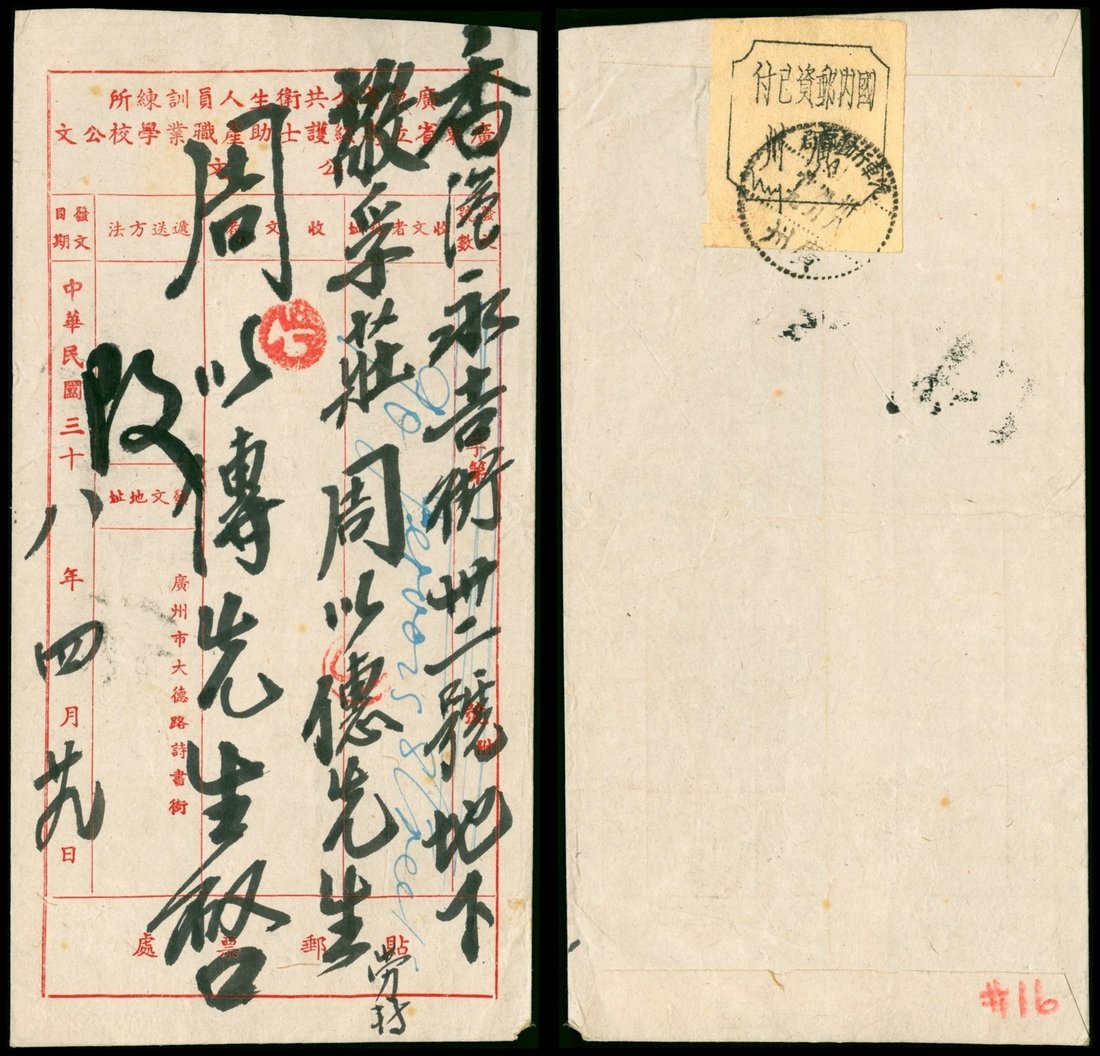 廣公共衛生人員訓練所
廣省立級護士助產職業學校公文
公文
收文者
遞送方法
發文日期
香港永吉街卅二號地下
孚莊周以德先生
勞轉
周以專先生啓
字第
號
附
發文地址
廣州市大德路詩書街
中華民國三十八年四月廿九日
貼郵票處
國內郵資已付
廣州
廣州
#16